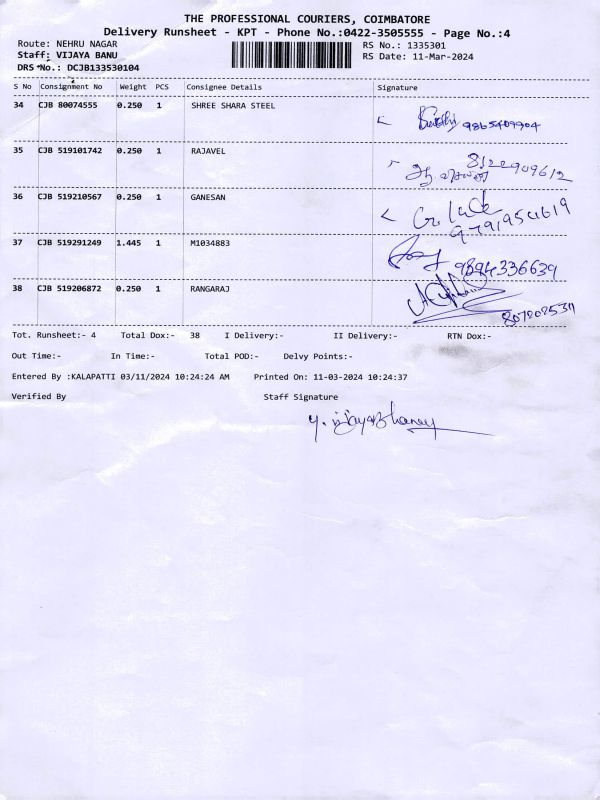 THE PROFESSIONAL COURIERS, COIMBATORE
Delivery Runsheet - KPT - Phone No.:0422-3505555 - Page No.:4
Route: NEHRU NAGAR RS No.: 1335301
Staff: VIJAYA BANU RS Date: 11-Mar-2024
DRS No.: DCJB133530104
S No Consignment No Weight PCS Consignee Details Signature
34 CJB 80074555 0.250 1 SHREE SHARA STEEL
9865409904
35 CJB 519101742 0.250 1 RAJAVEL
8122909612
36 CJB 519210567 0.250 1 GANESAN
9791951619
37 CJB 519291249 1.445 1 M1034883
9894336639
38 CJB 519206872 0.250 1 RANGARAJ
Tot. Runsheet:- 4 Total Dox:- 38 I Delivery:- II Delivery:- RTN Dox:-
Out Time:- In Time:- Total POD:- Delvy Points:-
Entered By :KALAPATTI 03/11/2024 10:24:24 AM Printed On: 11-03-2024 10:24:37
Verified By Staff Signature